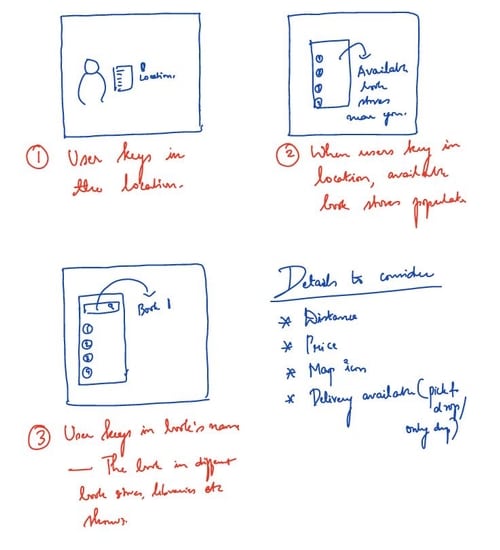 Location.
① User keys in
the location.
①
②
③
④
Available
book
stores
near you.
② When users key in
location, available
book stores populate
①
②
③
④
Book 1
③ User keys in book's name
— The book in different
book stores, libraries etc
shows.
Details to consider
* Distance
* Price
* Map icon
* Delivery available (pick &
drop/
only drop)